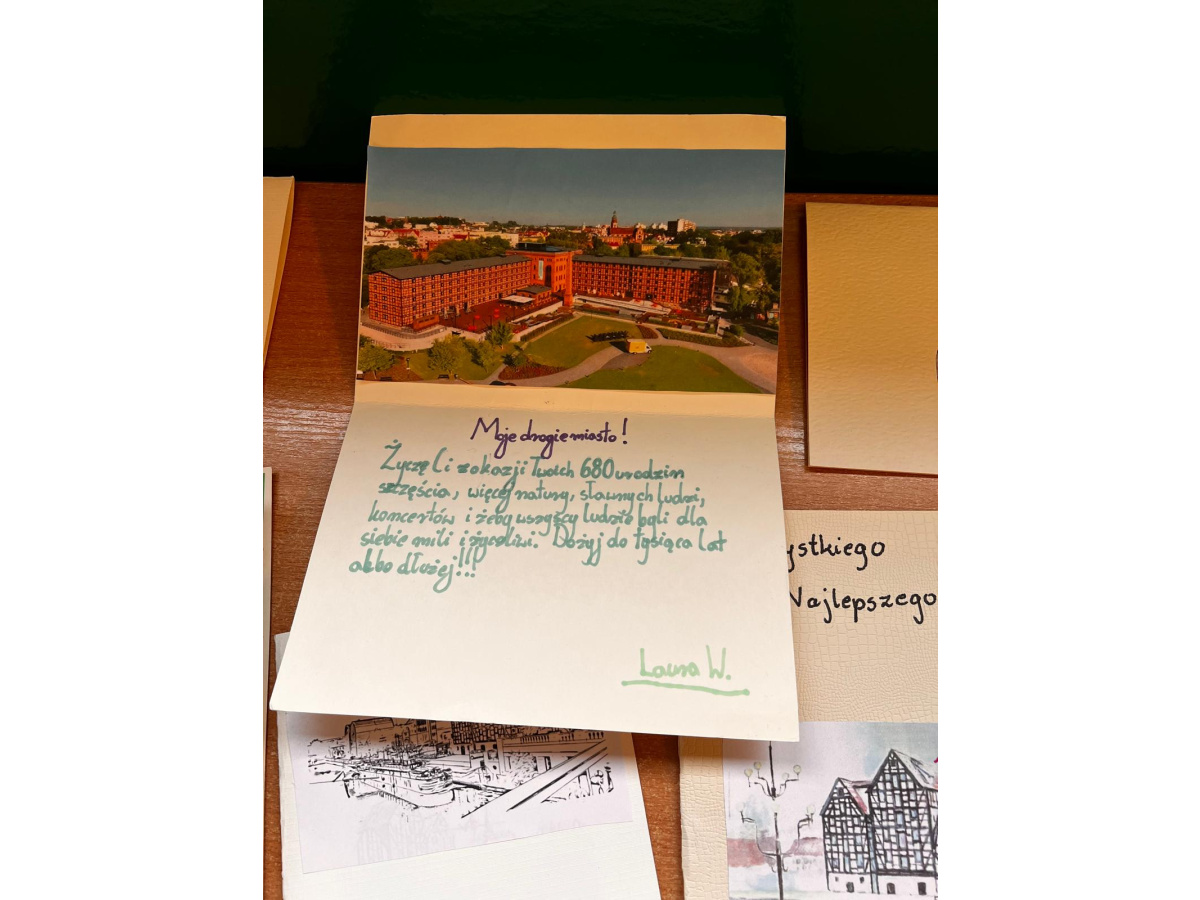 Moje drogie miasto!
Życzę Ci z okazji Twoich 680 urodzin
szczęścia, więcej natury, sławnych ludzi,
koncertów i żeby wszyscy ludzie byli dla
siebie mili i życzliwi. Dożyj do tysiąca lat
albo dłużej!!!
Laura W.
ystkiego
Najlepszego